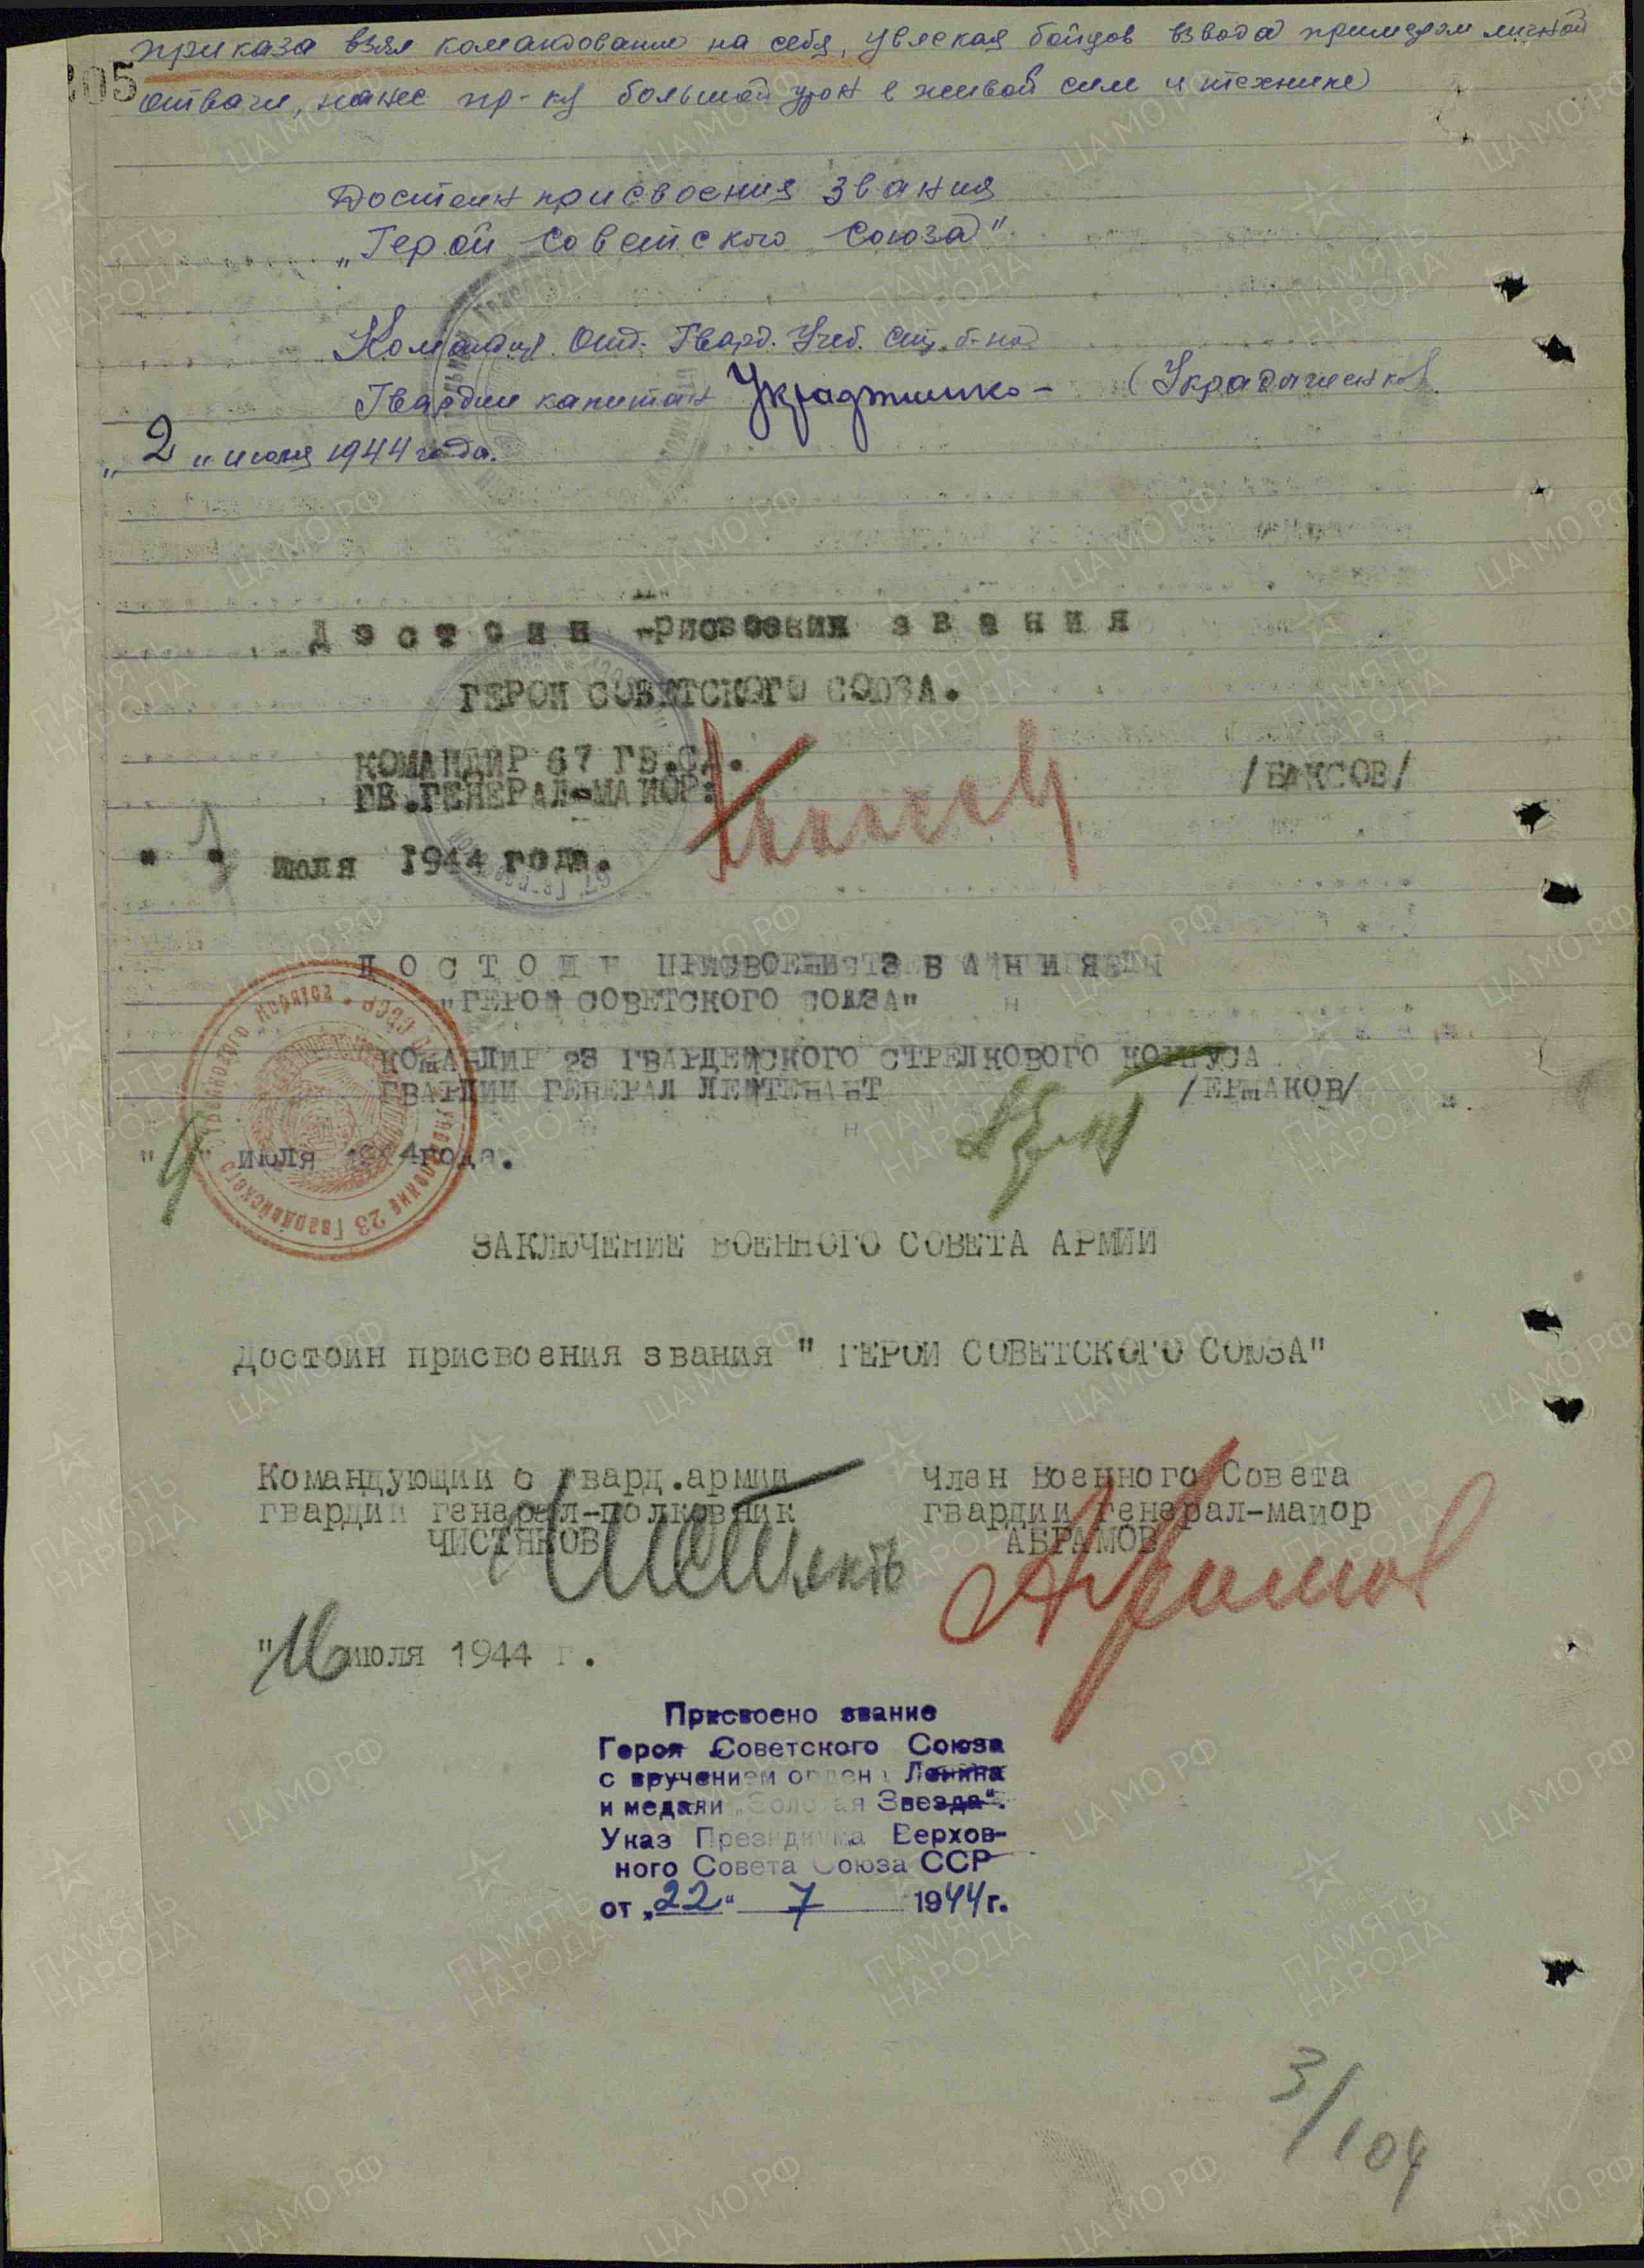 приказа взял командование на себя, увлекая бойцов взвода примером личной
205 отваги, нанес пр-ку большой урон в живой силе и технике
Достоин присвоения звания
„Герой Советского Союза"
Командир Отд. Гвард. Учеб. Стр. б-на
Гвардии капитан (Украдыженко)
„2" июля 1944 года.
Достоин присвоения звания
ГЕРОЙ СОВЕТСКОГО СОЮЗА.
КОМАНДИР 67 ГВ.СД.
ГВ.ГЕНЕРАЛ-МАЙОР: /БАКСОВ/
" " июля 1944 года.
ДОСТОИН ПРИСВОЕНИЯ ЗВАНИЯ
"ГЕРОЯ СОВЕТСКОГО СОЮЗА"
КОМАНДИР 23 ГВАРДЕЙСКОГО СТРЕЛКОВОГО КОРПУСА
ГВАРДИИ ГЕНЕРАЛ ЛЕЙТЕНАНТ /ЕРМАКОВ/
"4" июля 1944года.
ЗАКЛЮЧЕНИЕ ВОЕННОГО СОВЕТА АРМИИ
Достоин присвоения звания " ГЕРОЙ СОВЕТСКОГО СОЮЗА"
Командующий 6 гвард.армии Член Военного Совета
гвардии генерал-полковник гвардии генерал-майор
ЧИСТЯКОВ АБРАМОВ
"16 июля 1944 г.
Присвоено звание
Героя Советского Союза
с вручением ордена Ленина
и медали „Золотая Звезда".
Указ Президиума Верхов-
ного Совета Союза ССР
от „22" 7 1944г.
3/104